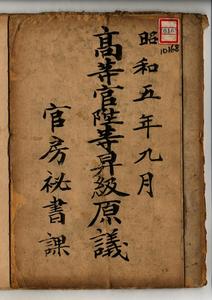 昭和五年九月
高等官陞等昇級原議
官房祕書課
10168